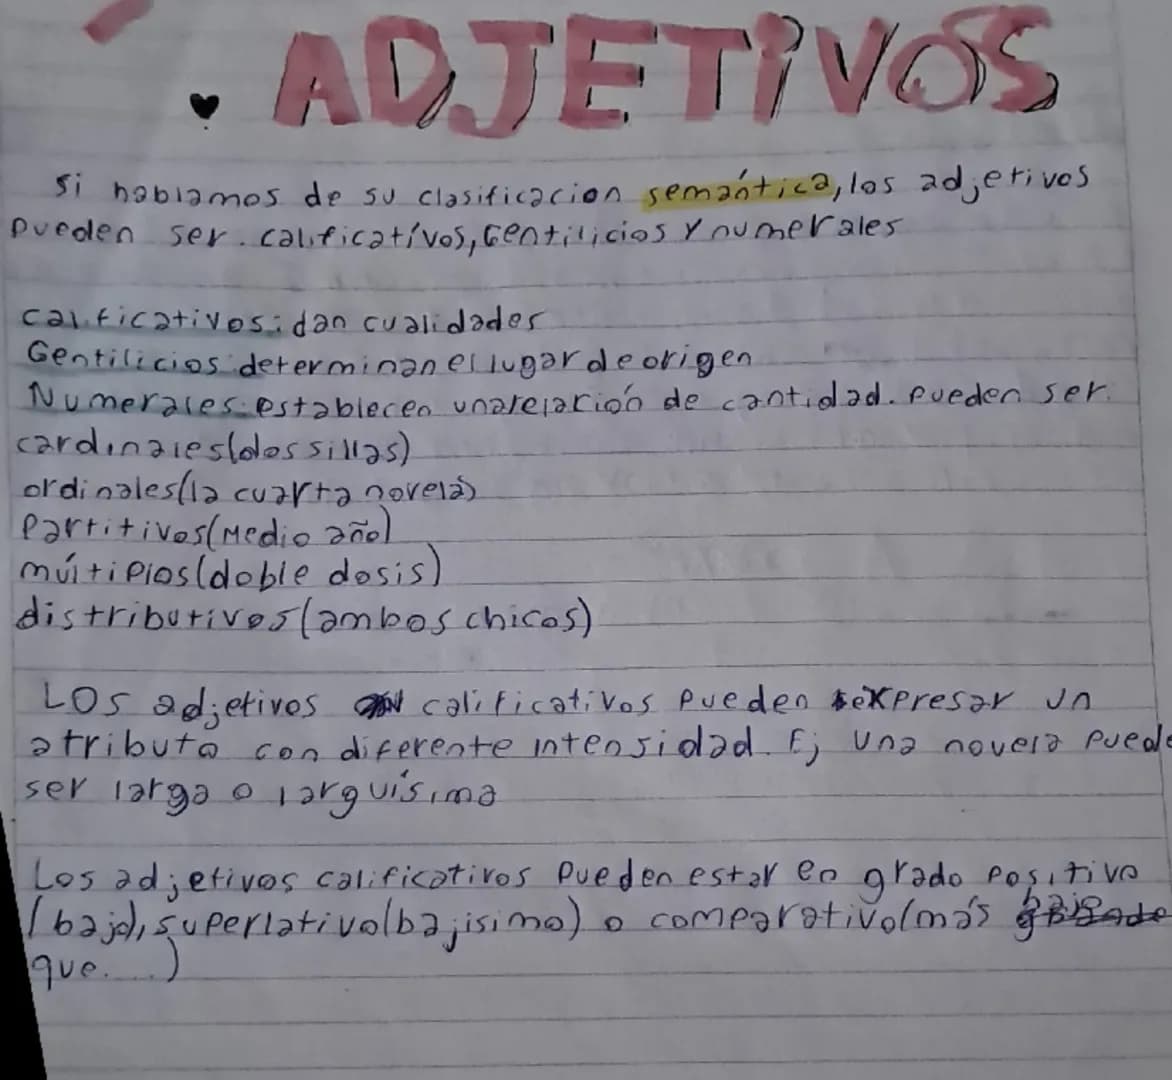 ADJETIVOS
si hablamos de su clasificacion semántica, los adjetivos
pueden ser. calificativos, Gentilicios y numerales
calificativos: dan cualidades
Gentilicios: determinan el lugar de origen
Numerales: establecen una relación de cantidad. Pueden ser.
cardinales (dos sillas)
ordinales (la cuarta novela)
Partitivos (Medio año)
múltiplos (doble dosis)
distributivos (ambos chicos)
Los adjetivos calificativos pueden expresar un
atributo con diferente intensidad. Ej una novela puede
ser larga o larguísima
Los adjetivos calificativos Pueden estar en grado positivo
(bajo), superlativo (bajisimo) o comparativo (más
que.....)